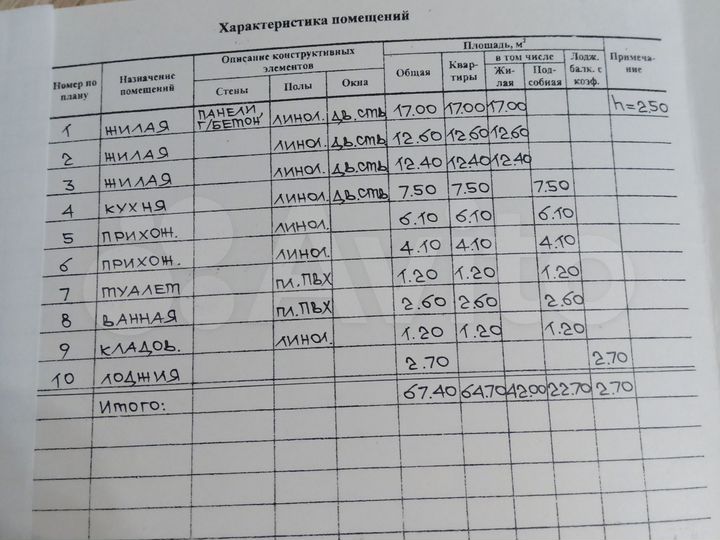 Характеристика помещений
Номер по плану
Назначение помещений
Описание конструктивных элементов
Площадь, м²
Стены
Полы
Окна
Общая
Квартиры
в том числе
Жилая
Подсобная
Лодж. балк. с коэф.
Примечание
1 ЖИЛАЯ ПАНЕЛИ, Г/БЕТОН ЛИНОЛ. ДВ.СТВ 17.00 17.00 17.00 h=2.50
2 ЖИЛАЯ ЛИНОЛ. ДВ.СТВ 12.60 12.60 12.60
3 ЖИЛАЯ ЛИНОЛ. ДВ.СТВ 12.40 12.40 12.40
4 КУХНЯ ЛИНОЛ. ДВ.СТВ 7.50 7.50 7.50
5 ПРИХОЖ. ЛИНОЛ. 6.10 6.10 6.10
6 ПРИХОЖ. ЛИНОЛ. 4.10 4.10 4.10
7 ТУАЛЕТ ПЛ.ПВХ 1.20 1.20 1.20
8 ВАННАЯ ПЛ.ПВХ 2.60 2.60 2.60
9 КЛАДОВ. ЛИНОЛ. 1.20 1.20 1.20
10 ЛОДЖИЯ 2.70 2.70
Итого: 67.40 64.70 42.00 22.70 2.70
Avito